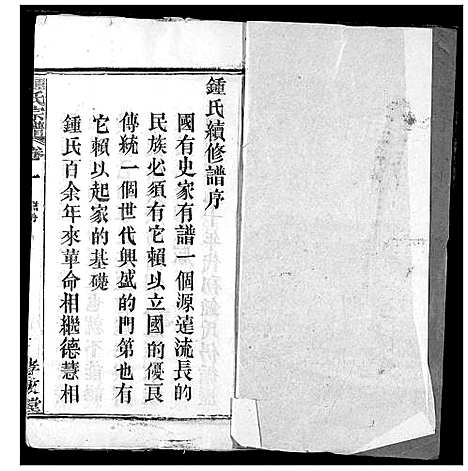 鍾氏續修譜序
國有史家有譜一個源遠流長的
民族必須有它賴以立國的優良
傳統一個世代興盛的門第也有
它賴以起家的基礎
鍾氏百余年來革命相繼德慧相
鍾氏宗譜 卷一